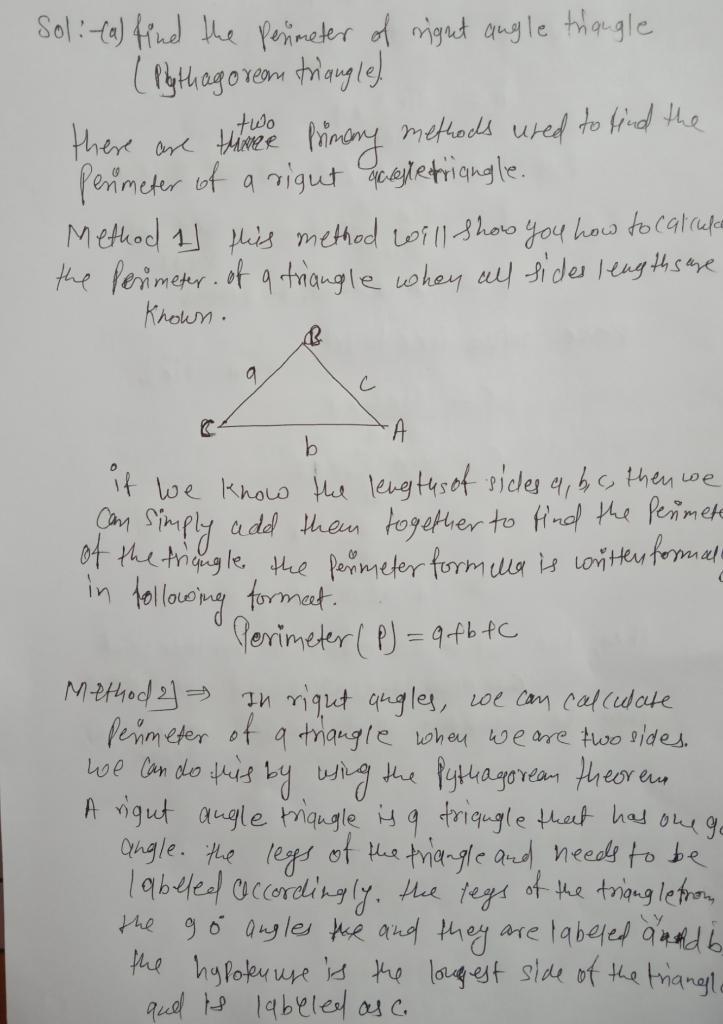 Sol:-(a) find the perimeter of right angle triangle
(Pythagorean triangle).
two
there are primary methods used to find the
Perimeter of a right triangle.
Method 1] this method will show you how to calcula
the Perimeter. of a triangle when all sides lengths are
Known.
B
a
c
C
A
b
if we know the lengths of sides a, b, c, then we
can simply add them together to find the Perimete
of the triangle. the perimeter formula is written formal
in following format.
Perimeter (P) = a+b+c
Method 2] ⇒ In right angles, we can calculate
Perimeter of a triangle when we are two sides.
we can do this by using the Pythagorean theorem
A right angle triangle is a triangle that has one 90
angle. the legs of the triangle and needs to be
labelled accordingly. the legs of the triangle from
the 90° angles and they are labeled a and b
the hypotenuse is the longest side of the triangl
and is labeled as c.